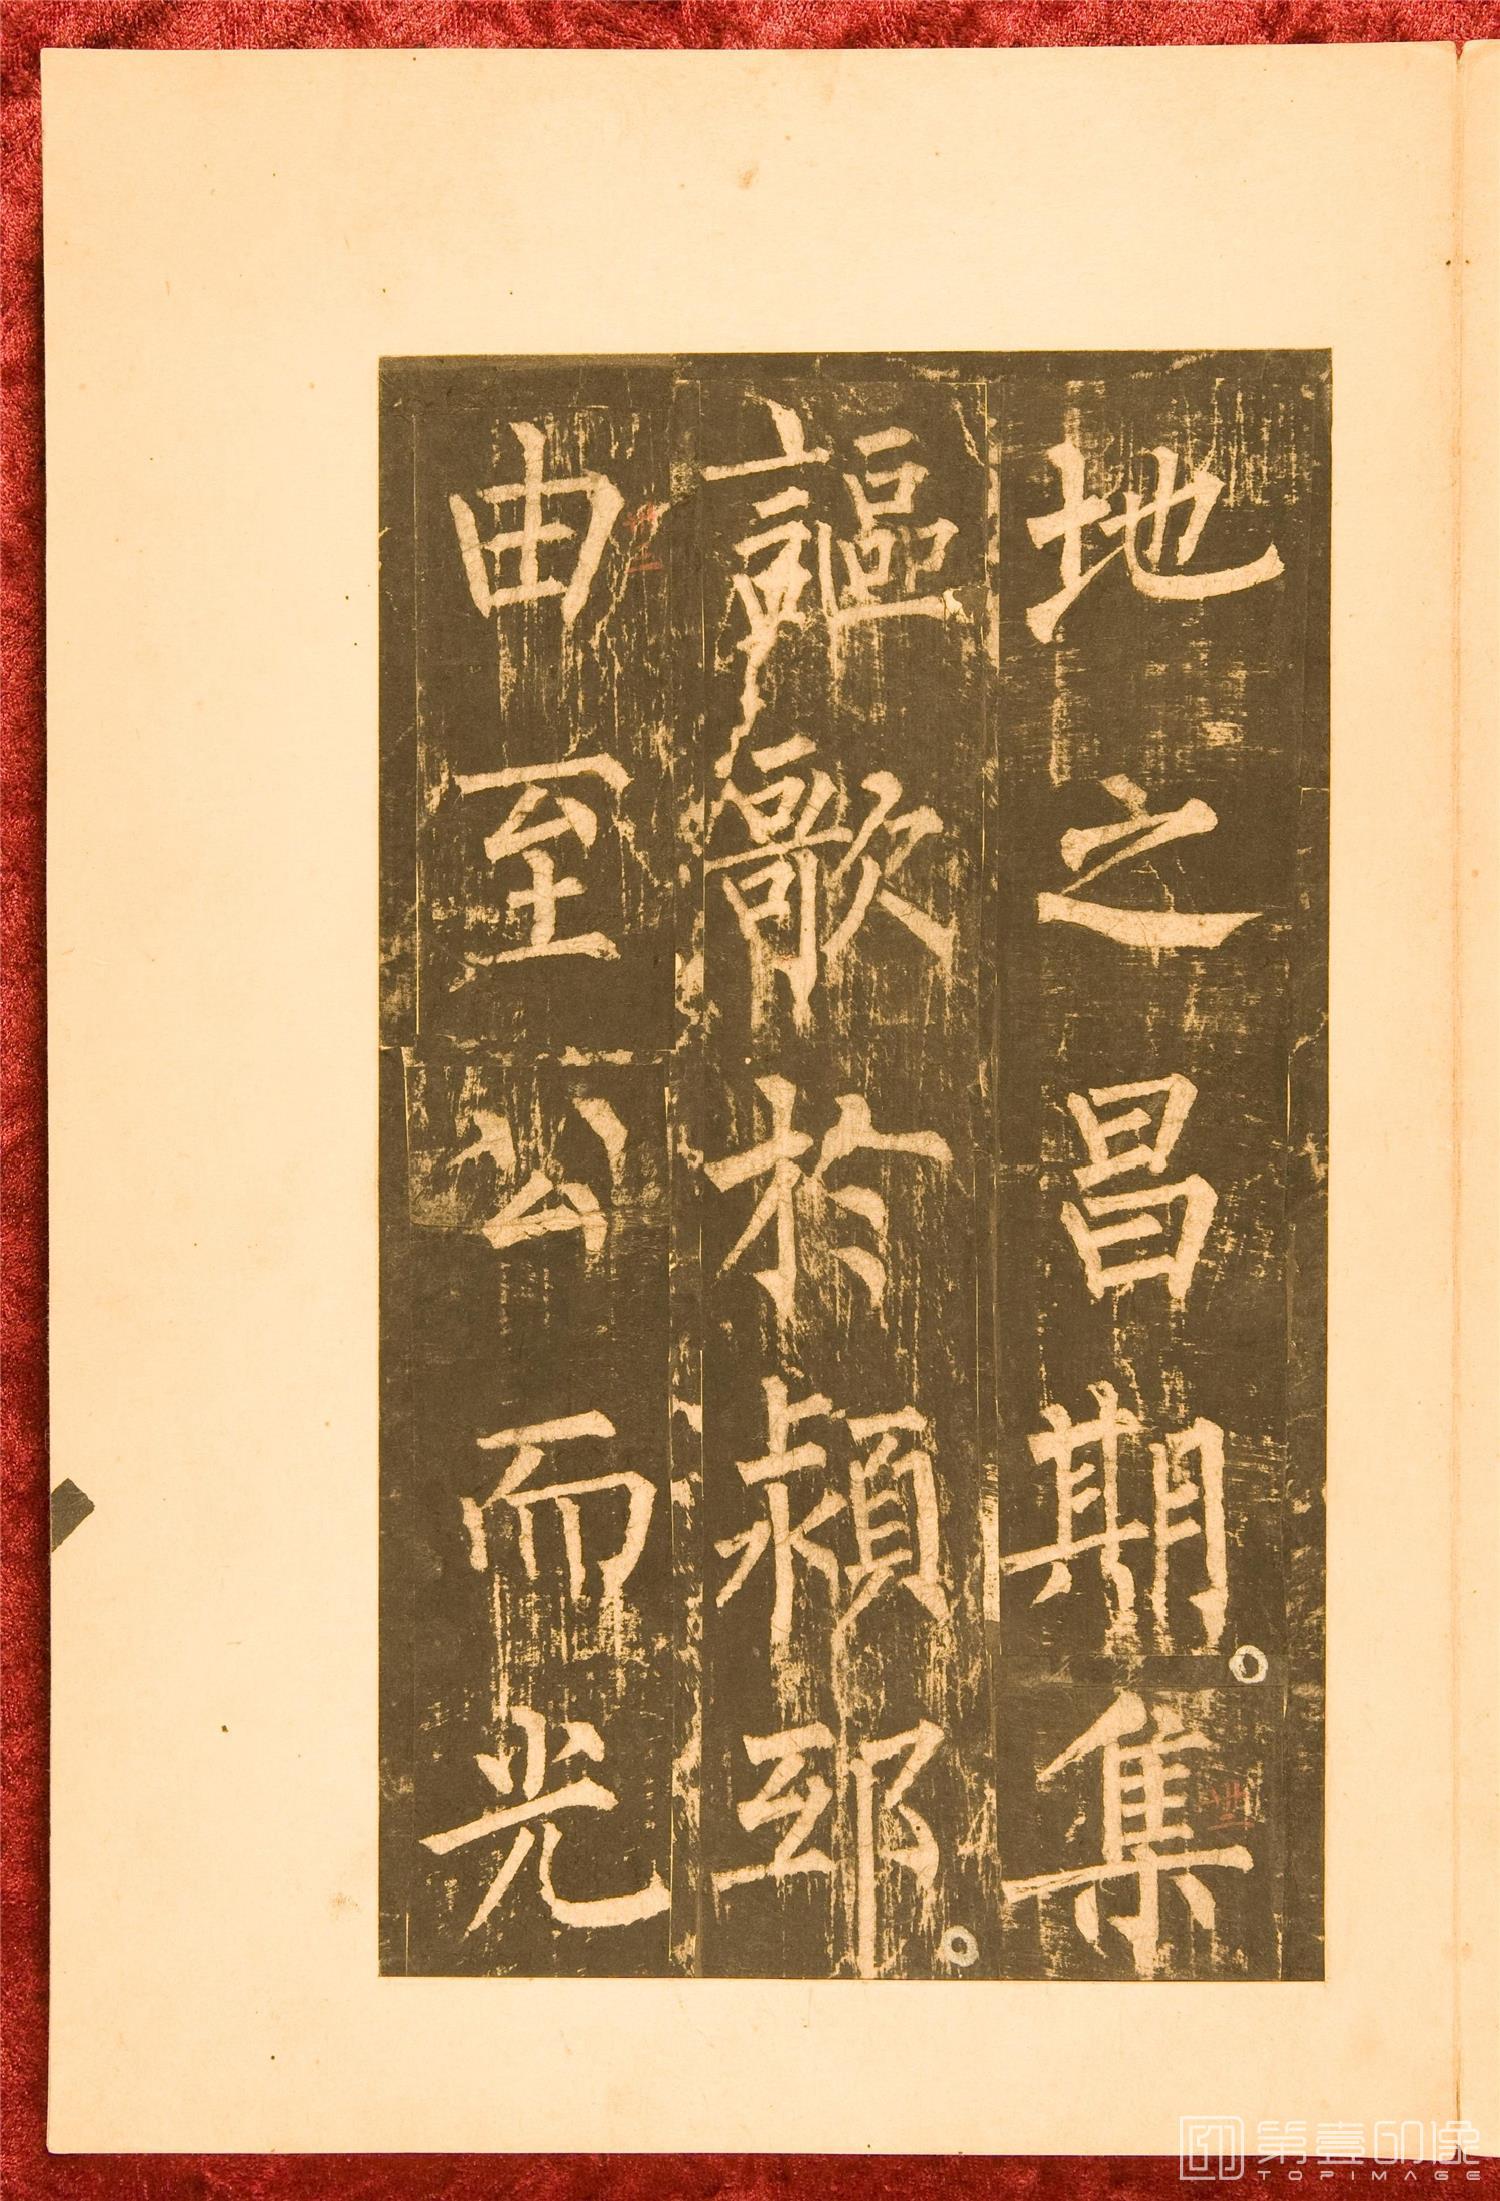 地之昌期集
謳歌於潁邳
由至公而光
第壹印像
TOPIMAGE